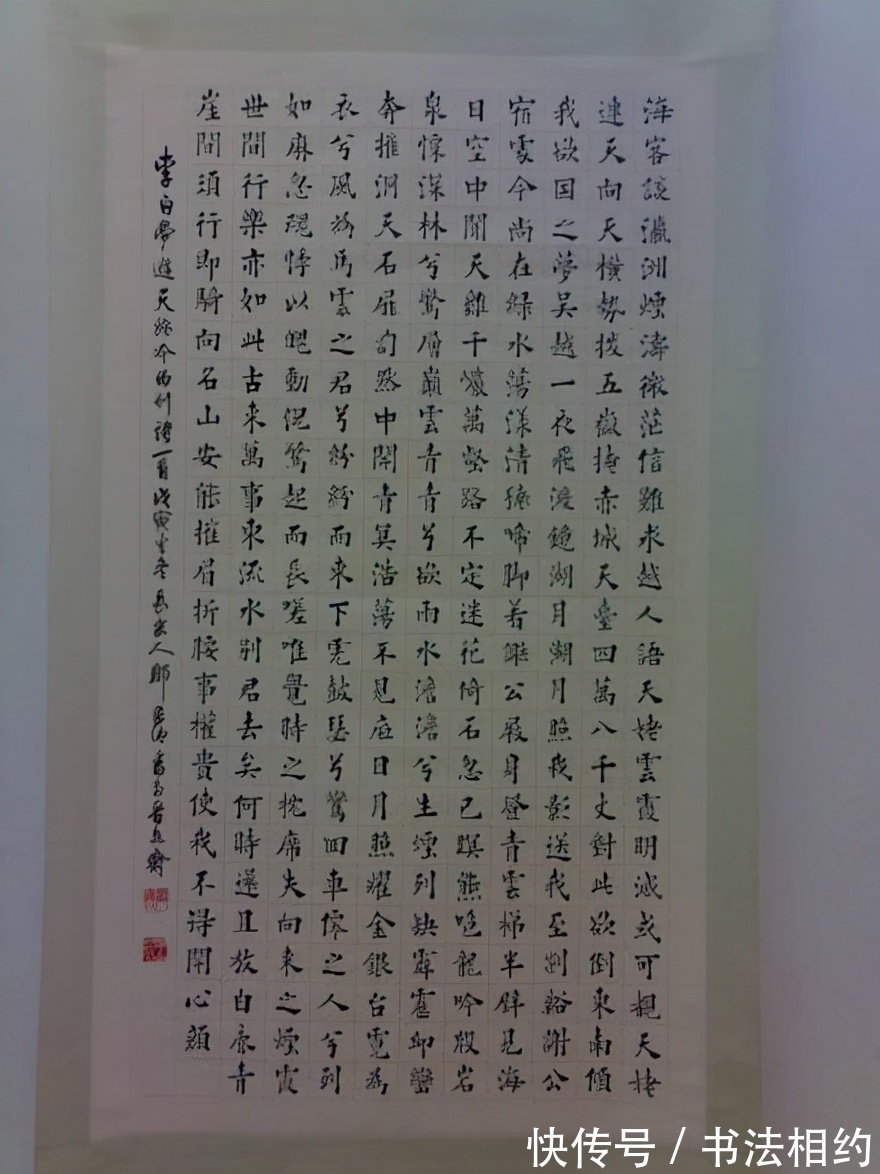 海客談瀛洲煙濤微茫信難求越人語天姥雲霞明滅或可覩天姥
連天向天橫勢拔五嶽掩赤城天臺四萬八千丈對此欲倒東南傾
我欲因之夢吳越一夜飛渡鏡湖月湖月照我影送我至剡谿謝公
宿處今尚在綠水蕩漾清猿啼脚着謝公屐身登青雲梯半壁見海
日空中聞天雞千巖萬壑路不定迷花倚石忽已暝熊咆龍吟殷岩
泉慄深林兮驚層巔雲青青兮欲雨水澹澹兮生煙列缺霹靂邱巒
奔摧洞天石扉訇然中開青冥浩蕩不見底日月照耀金銀台霓為
衣兮風為馬雲之君兮紛紛而來下虎鼓瑟兮鸞回車僊之人兮列
如麻忽魂悸以魄動怳驚起而長嗟唯覺時之枕席失向來之煙霞
世間行樂亦如此古來萬事東流水別君去矣何時還且放白鹿青
崖間須行即騎向名山安能摧眉折腰事權貴使我不得開心顏
李白夢遊天姥吟留別詩一首戊寅冬長安人
快传号 / 书法相约